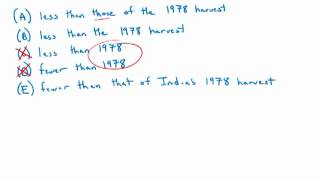 (A) less than those of the 1978 harvest
(B) less than the 1978 harvest
(C) less than 1978
(D) fewer than 1978
(E) fewer than that of India's 1978 harvest